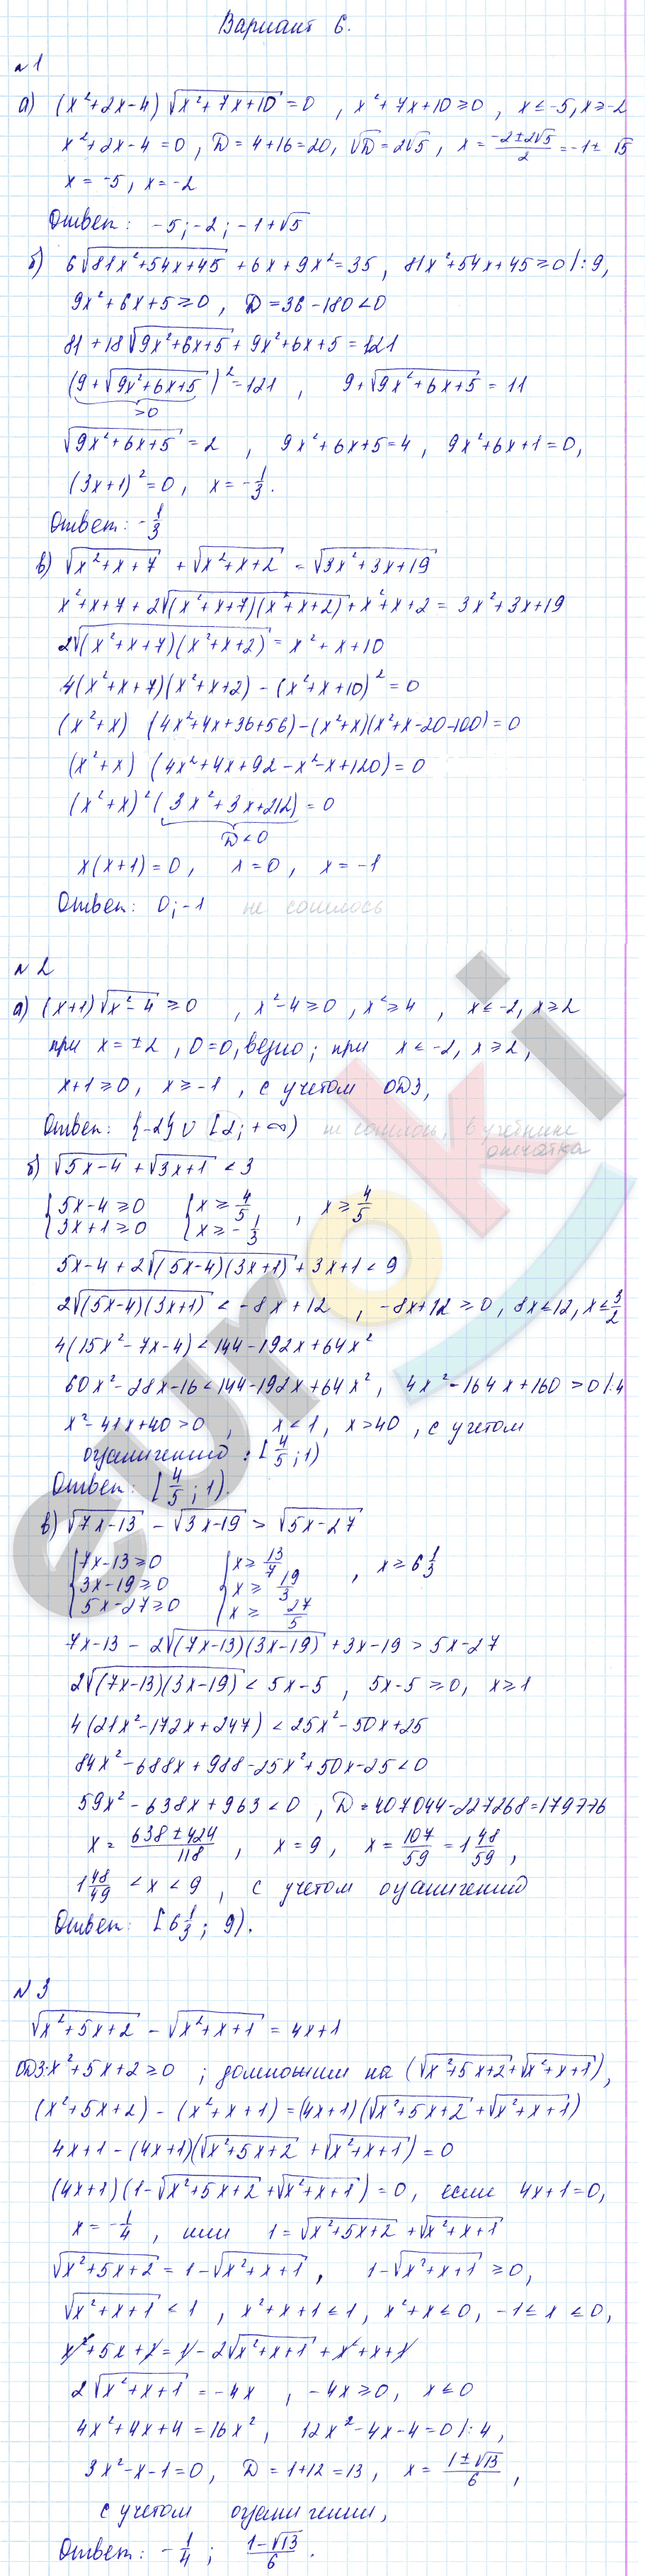 Вариант 6.
№1
а) (x²+2x-4)√(x²+7x+10)=0 , x²+7x+10≥0 , x≤-5, x≥-2
x²+2x-4=0 , D=4+16=20, √D=2√5 , x=(-2±2√5)/2=-1±√5
x=-5, x=-2
Ответ: -5; -2; -1+√5
б) 6√(81x²+54x+45) + 6x+9x²=35 , 81x²+54x+45≥0 |:9,
9x²+6x+5≥0 , D=36-180<0
81+18√(9x²+6x+5)+9x²+6x+5=121
(9+√(9x²+6x+5))²=121 , 9+√(9x²+6x+5)=11
>0
√(9x²+6x+5)=2 , 9x²+6x+5=4 , 9x²+6x+1=0,
(3x+1)²=0, x=-1/3.
Ответ: -1/3
в) √(x²+x+7) + √(x²+x+2) = √(3x²+3x+19)
x²+x+7+2√((x²+x+7)(x²+x+2))+x²+x+2=3x²+3x+19
2√((x²+x+7)(x²+x+2))=x²+x+10
4(x²+x+7)(x²+x+2)-(x²+x+10)²=0
(x²+x) (4x²+4x+36+56)-(x²+x)(x²+x-20-100)=0
(x²+x) (4x²+4x+92-x²-x+120)=0
(x²+x)²(3x²+3x+212)=0
D<0
x(x+1)=0, x=0, x=-1
Ответ: 0; -1 не сошлось
№2
а) (x+1)√(x²-4)≥0 , x²-4≥0, x²≥4 , x≤-2, x≥2
при x=±2 , 0=0, верно; при x≤-2, x≥2,
x+1≥0, x≥-1 , с учетом ОДЗ,
Ответ: {-2}∪[2;+∞) не сошлось, в учебнике
опечатка
б) √(5x-4)+√(3x+1)<3
{5x-4≥0 {x≥4/5 , x≥4/5
{3x+1≥0 {x≥-1/3
5x-4+2√((5x-4)(3x+1))+3x+1<9
2√((5x-4)(3x+1))<-8x+12 , -8x+12≥0, 8x≤12, x≤3/2
4(15x²-7x-4)<144-192x+64x²
60x²-28x-16<144-192x+64x², 4x²-164x+160>0 |:4
x²-41x+40>0 , x<1, x>40 , с учетом
ограничений: [4/5;1)
Ответ: [4/5;1).
в) √(7x-13) - √(3x-19) > √(5x-27)
{7x-13≥0 {x≥13/7 , x≥6 1/3
{3x-19≥0 {x≥19/3
{5x-27≥0 {x≥27/5
7x-13-2√((7x-13)(3x-19))+3x-19>5x-27
2√((7x-13)(3x-19))<5x-5 , 5x-5≥0, x≥1
4(21x²-172x+247)<25x²-50x+25
84x²-688x+988-25x²+50x-25<0
59x²-638x+963<0 , D=407044-227268=179776
x=(638±424)/118 , x=9, x=107/59=1 48/59 ,
1 48/49<x<9 , с учетом ограничений
Ответ: [6 1/3; 9).
№3
√(x²+5x+2) - √(x²+x+1) = 4x+1
ОДЗ: x²+5x+2≥0 ; домножим на (√(x²+5x+2)+√(x²+x+1)),
(x²+5x+2)-(x²+x+1)=(4x+1)(√(x²+5x+2)+√(x²+x+1))
4x+1-(4x+1)(√(x²+5x+2)+√(x²+x+1))=0
(4x+1)(1-√(x²+5x+2)+√(x²+x+1))=0, если 4x+1=0,
x=-1/4 , или 1=√(x²+5x+2)+√(x²+x+1)
√(x²+5x+2)=1-√(x²+x+1) , 1-√(x²+x+1)≥0,
√(x²+x+1)<1 , x²+x+1≤1, x²+x≤0, -1≤x≤0,
x²+5x+2=1-2√(x²+x+1)+x²+x+1
2√(x²+x+1)=-4x , -4x≥0, x≤0
4x²+4x+4=16x², 12x²-4x-4=0 |:4,
3x²-x-1=0, D=1+12=13, x=(1±√13)/6 ,
с учетом ограничений,
Ответ: -1/4; (1-√13)/6.
euroki